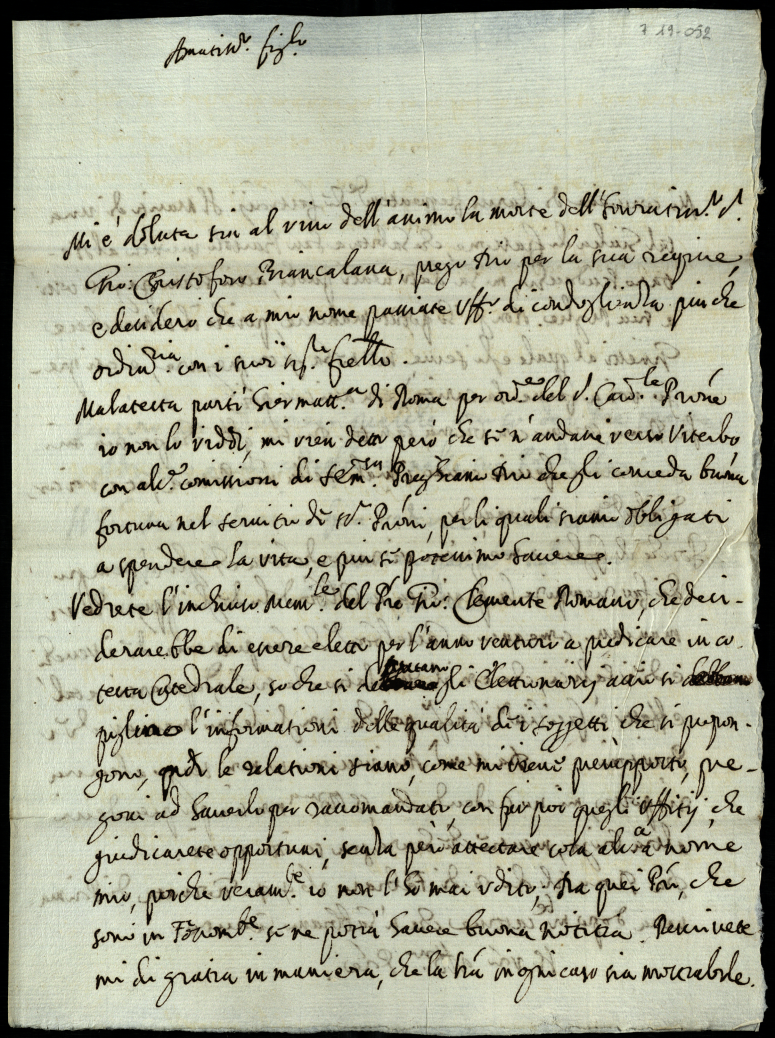 7 19-052
Amatis.º figl.º
Mi è doluta sin al vivo dell'animo la morte dell'
Gio: Christoforo Brancalana, prego Dio per la sua requie,
e desidero che a mio nome passiate uff.º di condoglienza più che
ordin.ria con i suoi sig.ri f.elli.
Malatesta partì hiermatt.na di Roma per ord.e del s. Card.le Prōne
io non lo viddi, mi vien detto però che se n'andava verso Viterbo
con alc.e comissioni di Preghiamo Dio che gli conceda buona
fortuna nel servitio de ss.ri Prōni, per li quali siamo obligati
a spendere la vita, e più se potessimo havere.
Vedrete l'inchiuso mem.le del Pre Gio: Clemente Romano, che desi-
derarebbe di essere eletto per l'anno venturo a predicare in co-
testa Catedrale, so che si gli Elettionarij acciò si
piglino l'informationi delle qualità de i soggetti che si propon-
gono, qndo le relationi siano, come mi viene presupposto, pre-
govi ad haverlo per raccomandato, con far poi quegli uffitij, che
giudicarete opportuni, senza però attestare cosa alc.a à nome
mio, perche veram.te io non l'hò mai udito, Da quei Pri, che
sono in se ne potrà havere buona notitia. Rescrivete
mi di gratia in maniera, che la lrā in ogni caso sia mostrabile.